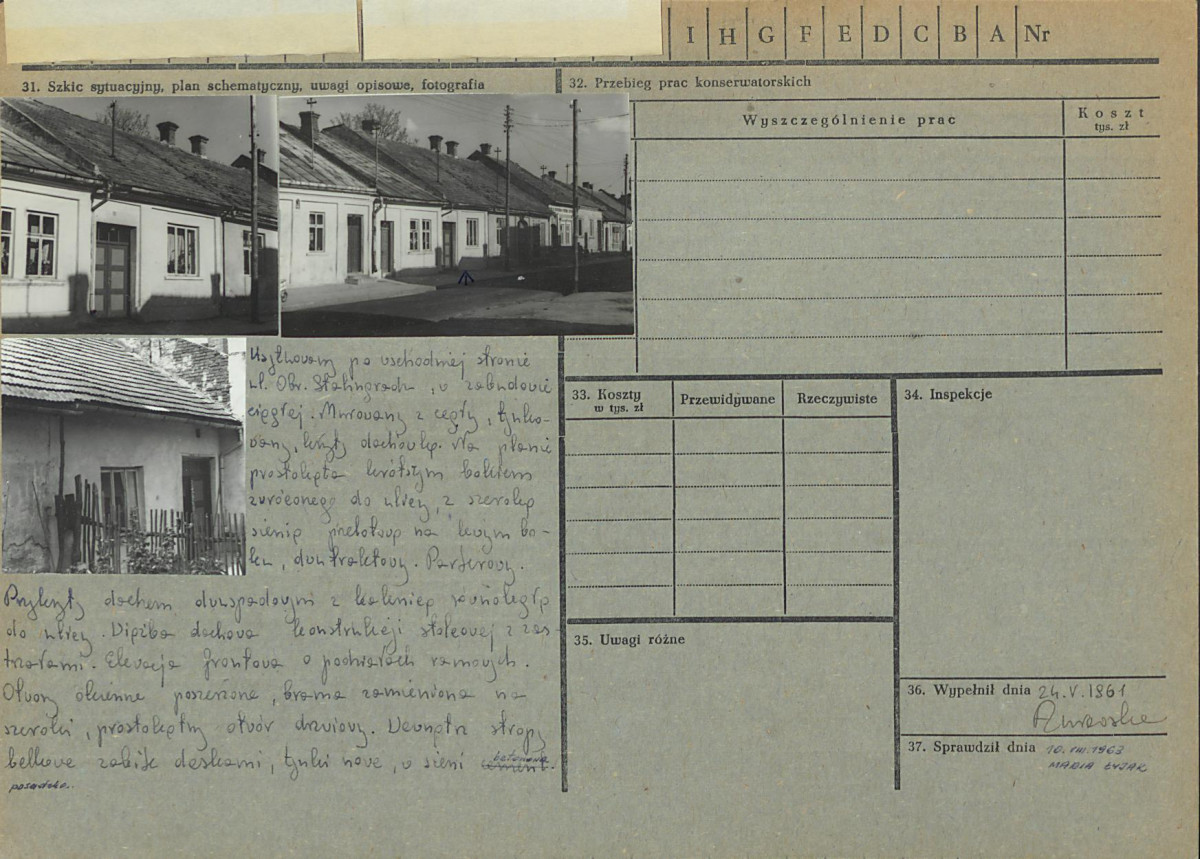 I H G F E D C B A Nr
31. Szkic sytuacyjny, plan schematyczny, uwagi opisowe, fotografia
32. Przebieg prac konserwatorskich
Wyszczególnienie prac
Koszt
tys. zł
Usytuowany po wschodniej stronie
ul. Obr. Stalingradu, w zabudowie
ciągłej. Murowany z cegły, tynko-
wany, kryty dachówką. Na planie
prostokąta krótszym bokiem
zwróconego do ulicy, z szeroką
sienią przelotową na lewym bo-
ku, dwutraktowy. Parterowy.
Przykryty dachem dwuspadowym z kalenicą równoległą
do ulicy. Więźba dachowa konstrukcji stolcowej z zas-
trzałami. Elewacja frontowa o podziałach ramowych.
Otwory okienne poszerzone, brama zamieniona na
szeroki, prostokątny otwór drzwiowy. Wewnątrz stropy
belkowe zabite deskami, tynki nowe, w sieni cement. betonowa
posadzka.
33. Koszty
w tys. zł
Przewidywane
Rzeczywiste
34. Inspekcje
35. Uwagi różne
36. Wypełnił dnia 24.V.1961
37. Sprawdził dnia 10.VIII.1963
MARIA ŁYJAK